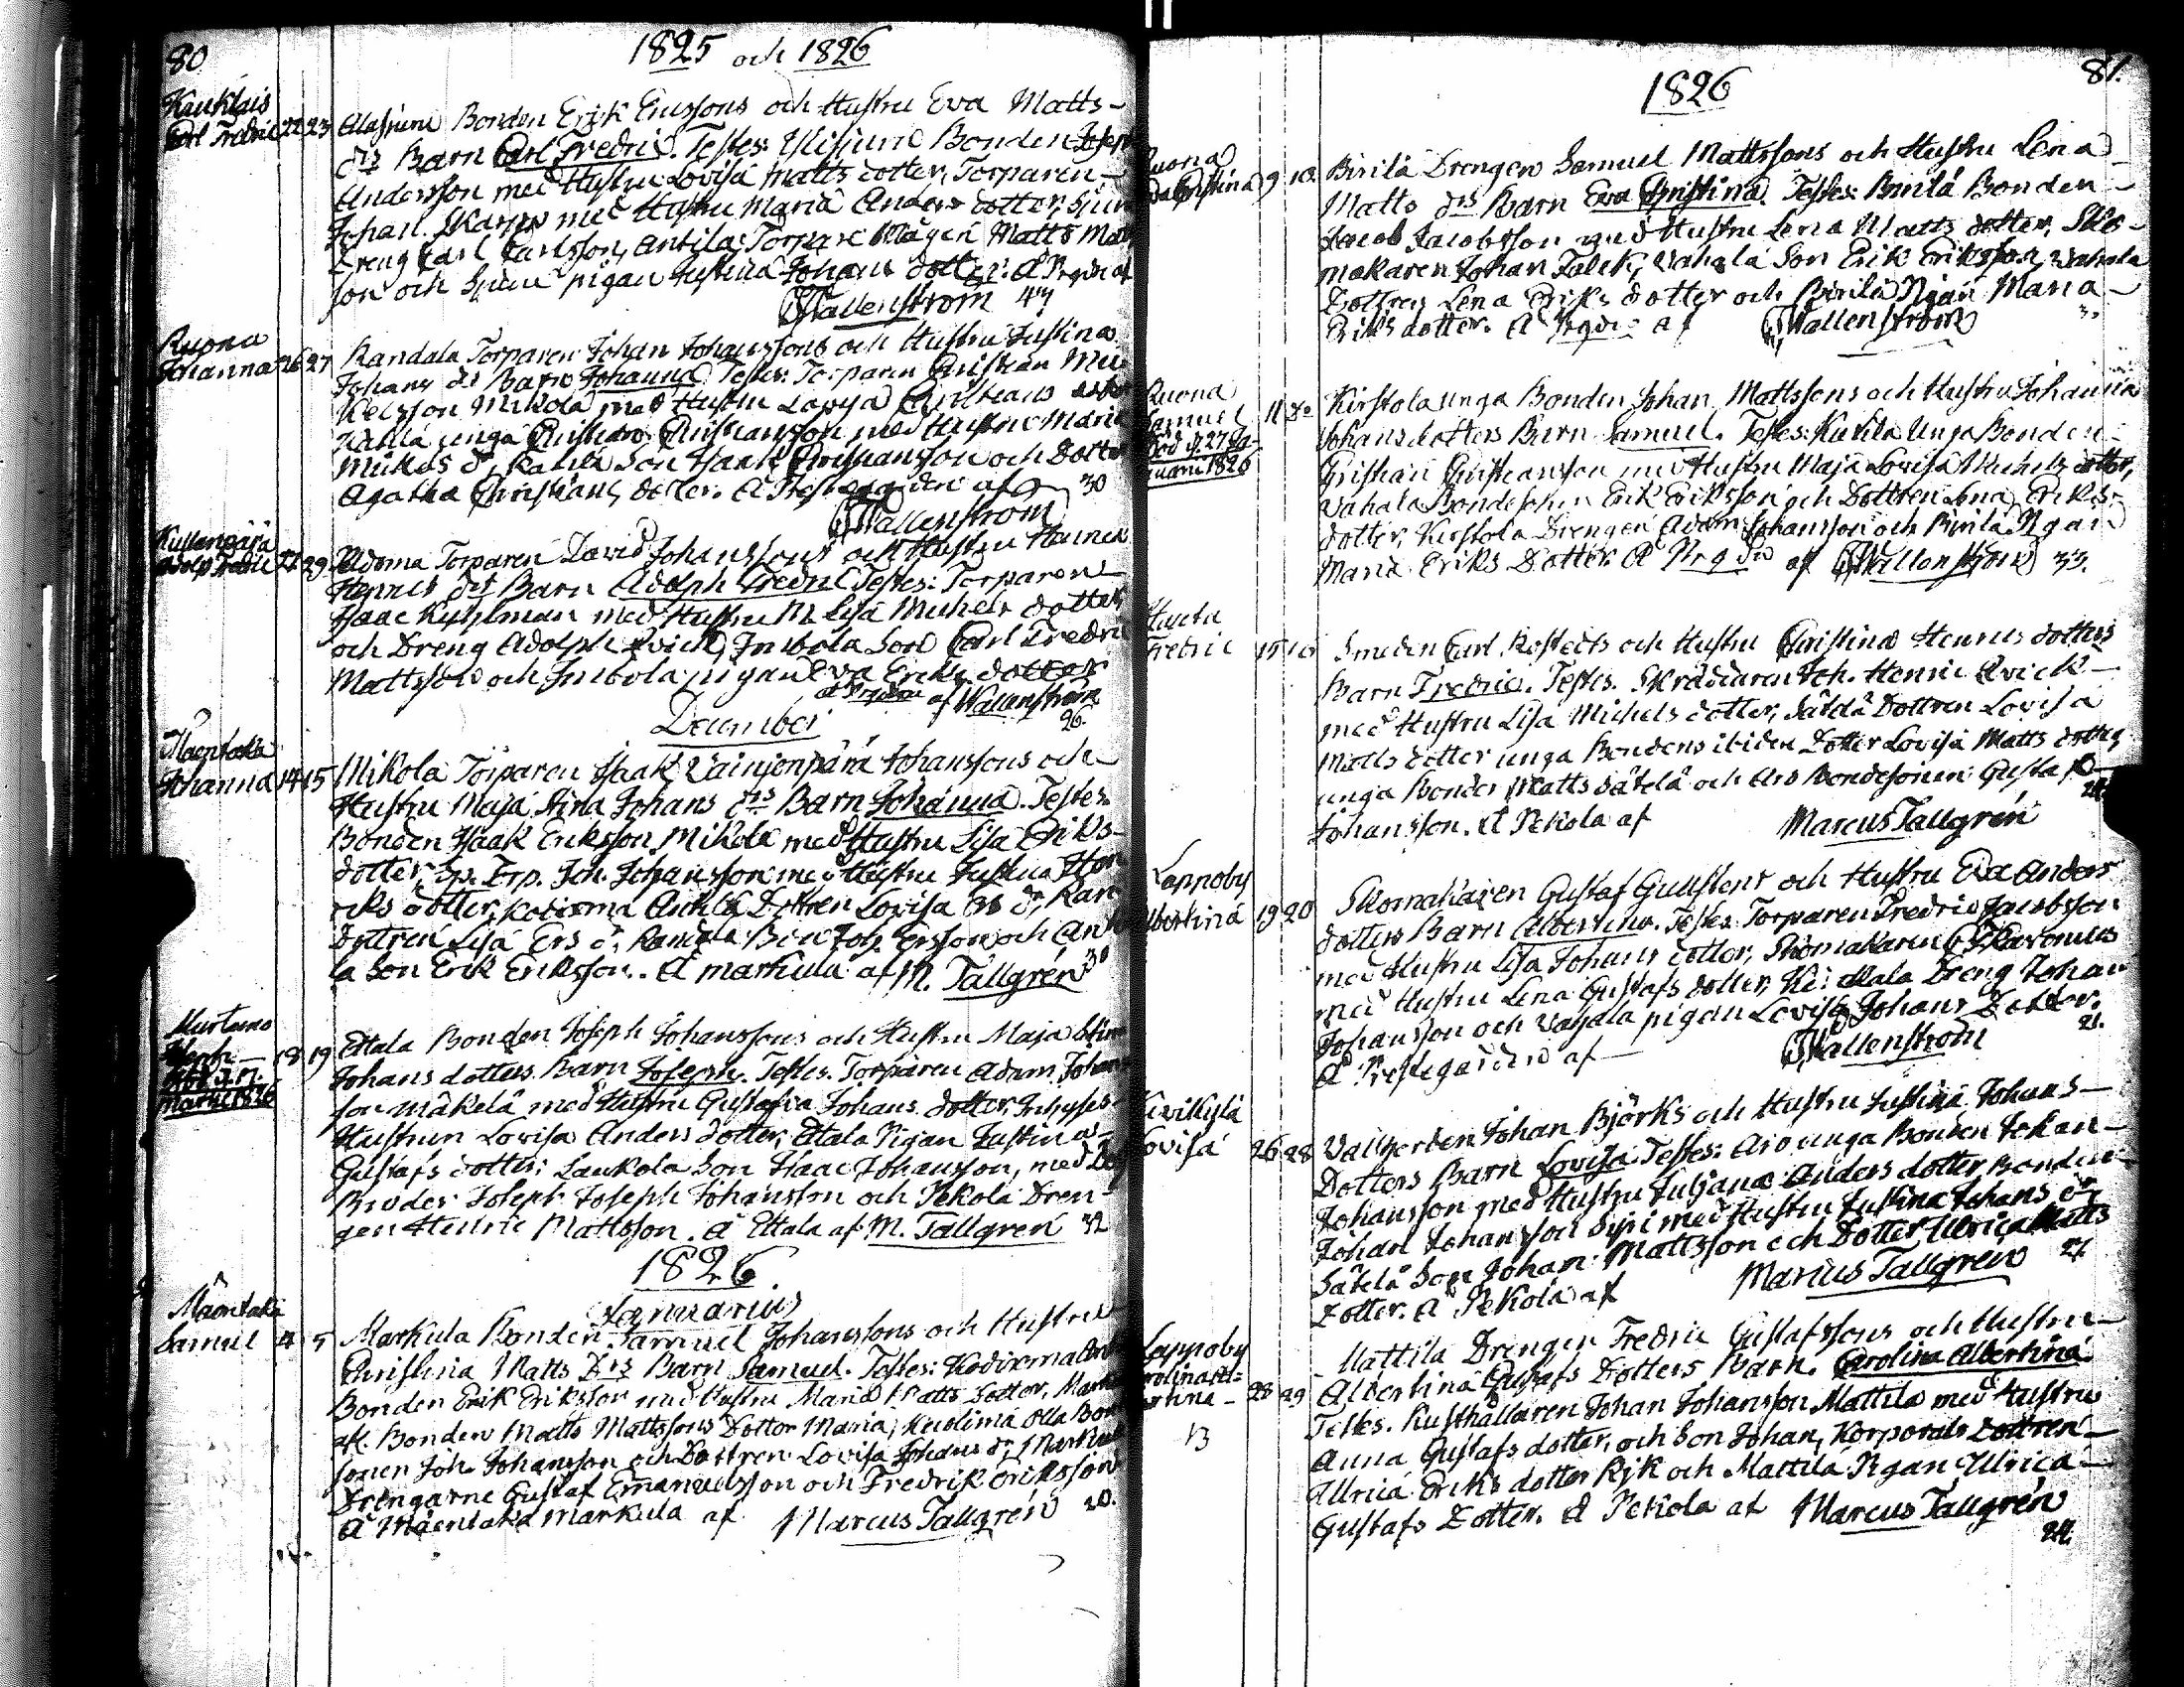 80
1825 och 1826
Kauklais
Carl Fredric 22 23 Alasjuni Bonden Erik Erssons och Hustru Eva Matts-
drs Barn Carl Fredric. Testes: Ylisjuni Bonden Joseph
Andersson med Hustru Lovisa Matts dotter, Torparen
Johan med Hustru Maria Anders dotter, Sjuni
Dreng Carl Carlsson, Antila Torpare Mågen Matts Mats
son och Sjuni pigan Justina Johans dotter. A Prgdn af
Wallenstrom 47
Ruona
Johanna 26 27 Randala Torparen Johan Johanssons och Hustru Justina
Johans dr Barn Johanna. Testes: Torparen Christian Mic
kelsson Mikola med Hustru Lovisa Christians dotter
unga Christian Christiansson med Hustru Maria
Mickels dr, Son Isaak Christiansson och Dotter
Agatha Christians dotter. A Prestegården af 30
Wallenstrom
Adolp Fredric 27 29 Torparen David Johanssons och Hustru Henrica
Henrics drs Barn Adolph Fredric Testes: Torparen
Isaac Kuhlman med Hustru M. Lisa Michels dotter,
och Dreng Adolph Qvick, Imbola Son Carl Fredric
Mattsson och Imbola pigan Eva Eriks dotter
A Prgdn af Wallenstrom
26.
December
Mäentaka
Johanna 14 15 Mikola Torparen Isaak Vainionpärä Johanssons och
Hustru Maja Stina Johans drs Barn Johanna. Testes.
Bonden Isaak Eriksson Mikola med Hustru Lisa Eriks
dotter, Sp. Trp. Joh. Johansson med Hustru Justina Hen
riks dotter, Kodisma Anttila Dottren Lovisa Ers dr, Ran
Dottren Lisa Ers dr, Randla Bon Joh. Ersson och Antti
la Son Erik Eriksson. A Markula af M. Tallgrén 30
Murtamo
Joseph 18 19 Ettala Bonden Joseph Johanssons och Hustru Maja Stina
Död d. 17. Johans dotters Barn Joseph. Testes. Torparen Adam Johans
Martii 1826 son Mäkelä med Hustru Gustafva Johans dotter, Inhyses
Hustrun Lovisa Anders dotter, Ettala Pigan Justina
Gustafs dotter; Laukola Son Isaac Johansson, med
Broder Joseph Joseph Johansson och Pekola Dren-
gen Henric Mattsson. A Ettala af M. Tallgren 32
1826
Januarius
Mäentaka
Samuel 4 5 Markula Bonden Samuel Johanssons och Hustru
Christina Matts Drs Barn Samuel. Testes: Kodixma Ant
Bonden Erik Eriksson med Hustru Maria Matts Dotter, Mark
afl. Bonden Matts Mattssons Dotter Maria, Olla Bon
sonen Joh. Johansson och Dottren Lovisa Johans dr, Markula
Drengarne Gustaf Emanuelsson och Fredrik Eriksson
A Mäentaka Markula af Marcus Tallgrén 20.
81.
1826
Ruona
Eva Christina 9 10. Birilä Drengen Samuel Mattssons och Hustru Lena
Matts drs Barn Eva Christina. Testes: Birilä Bonden
Jacob Jacobsson med Hustru Lena Matts dotter, Sko-
makaren Johan Falck, Vahala Son Erik Eriksson, Vahala
Dottren Lena Eriks dotter och Birilä Pigan Maria
Eriks dotter. A Prgdn af Wallenstrom
Ruona
Samuel 11 do Kirstola unga Bonden Johan Mattssons och Hustru Johanna
Död d. 27 Ja- Johans dotters Barn Samuel. Testes: Unga Bonden
nuarii 1826 Cristian Christiansson med Hustru Maja Lovisa Michels dotter,
Vahala Bondesonen Erik Eriksson och Dottren Lena Eriks-
dotter, Kirstola Drengen Adam Johansson och Birilä Pigan
Maria Eriks Dotter. A Prgdn af Wallenstrom 33.
Fredric 15 16 Smeden Carl Rostedts och Hustru Christina Henrics dotters
Barn Fredric. Testes. Skräddaren Joh. Henric Qvick
med Hustru Lisa Michels dotter, Sätälä Dottren Lovisa
Matts dotter unga Bondens ibidem Dotter Lovisa Matts dotter
unga Bonden Matts Sätelä och Aro Bondesonen Gustaf
Johansson. A Pekola af Marcus Tallgrén
Lappoby
Albertina 19 20 Skomakaren Gustaf Gullstens och Hustru Eva Anders
dotters Barn Albertina. Testes: Torparen Fredric Jacobsson
med Hustru Lisa Johans dotter, Skomakaren
med Hustru Lena Gustafs dotter, Dreng Johan
Johansson och Vahala pigan Lovisa Johans Dotter.
A Prestegården af Wallenstrom 21.
Kivikylä
Lovisa 26 28 Vallherden Johan Björks och Hustru Justina Johans
Dotters Barn Lovisa. Testes: Aro unga Bonden Johan
Johansson med Hustru Juliana Anders dotter, Bonden
Johan Johansson Sipi med Hustru Justina Johans dr,
Sätelä Son Johan Mattsson och Dotter Ulrica Matts
Dotter. A Pekola af Marcus Tallgren 27.
Lappoby
Carolina Al-
bertina 28 29 Mattila Drengen Fredric Gustafssons och Hustru
Albertina Gustafs Dotters Barn. Carolina Albertina.
Testes. Rusthållaren Johan Johansson Mattila med Hustru
Anna Gustafs dotter, och Son Johan, Korporals Dottren
Ullrica Eriks dotter Rjk och Mattila Pigan Ullrica
Gustafs Dotter. A Pekola af Marcus Tallgrén
24.